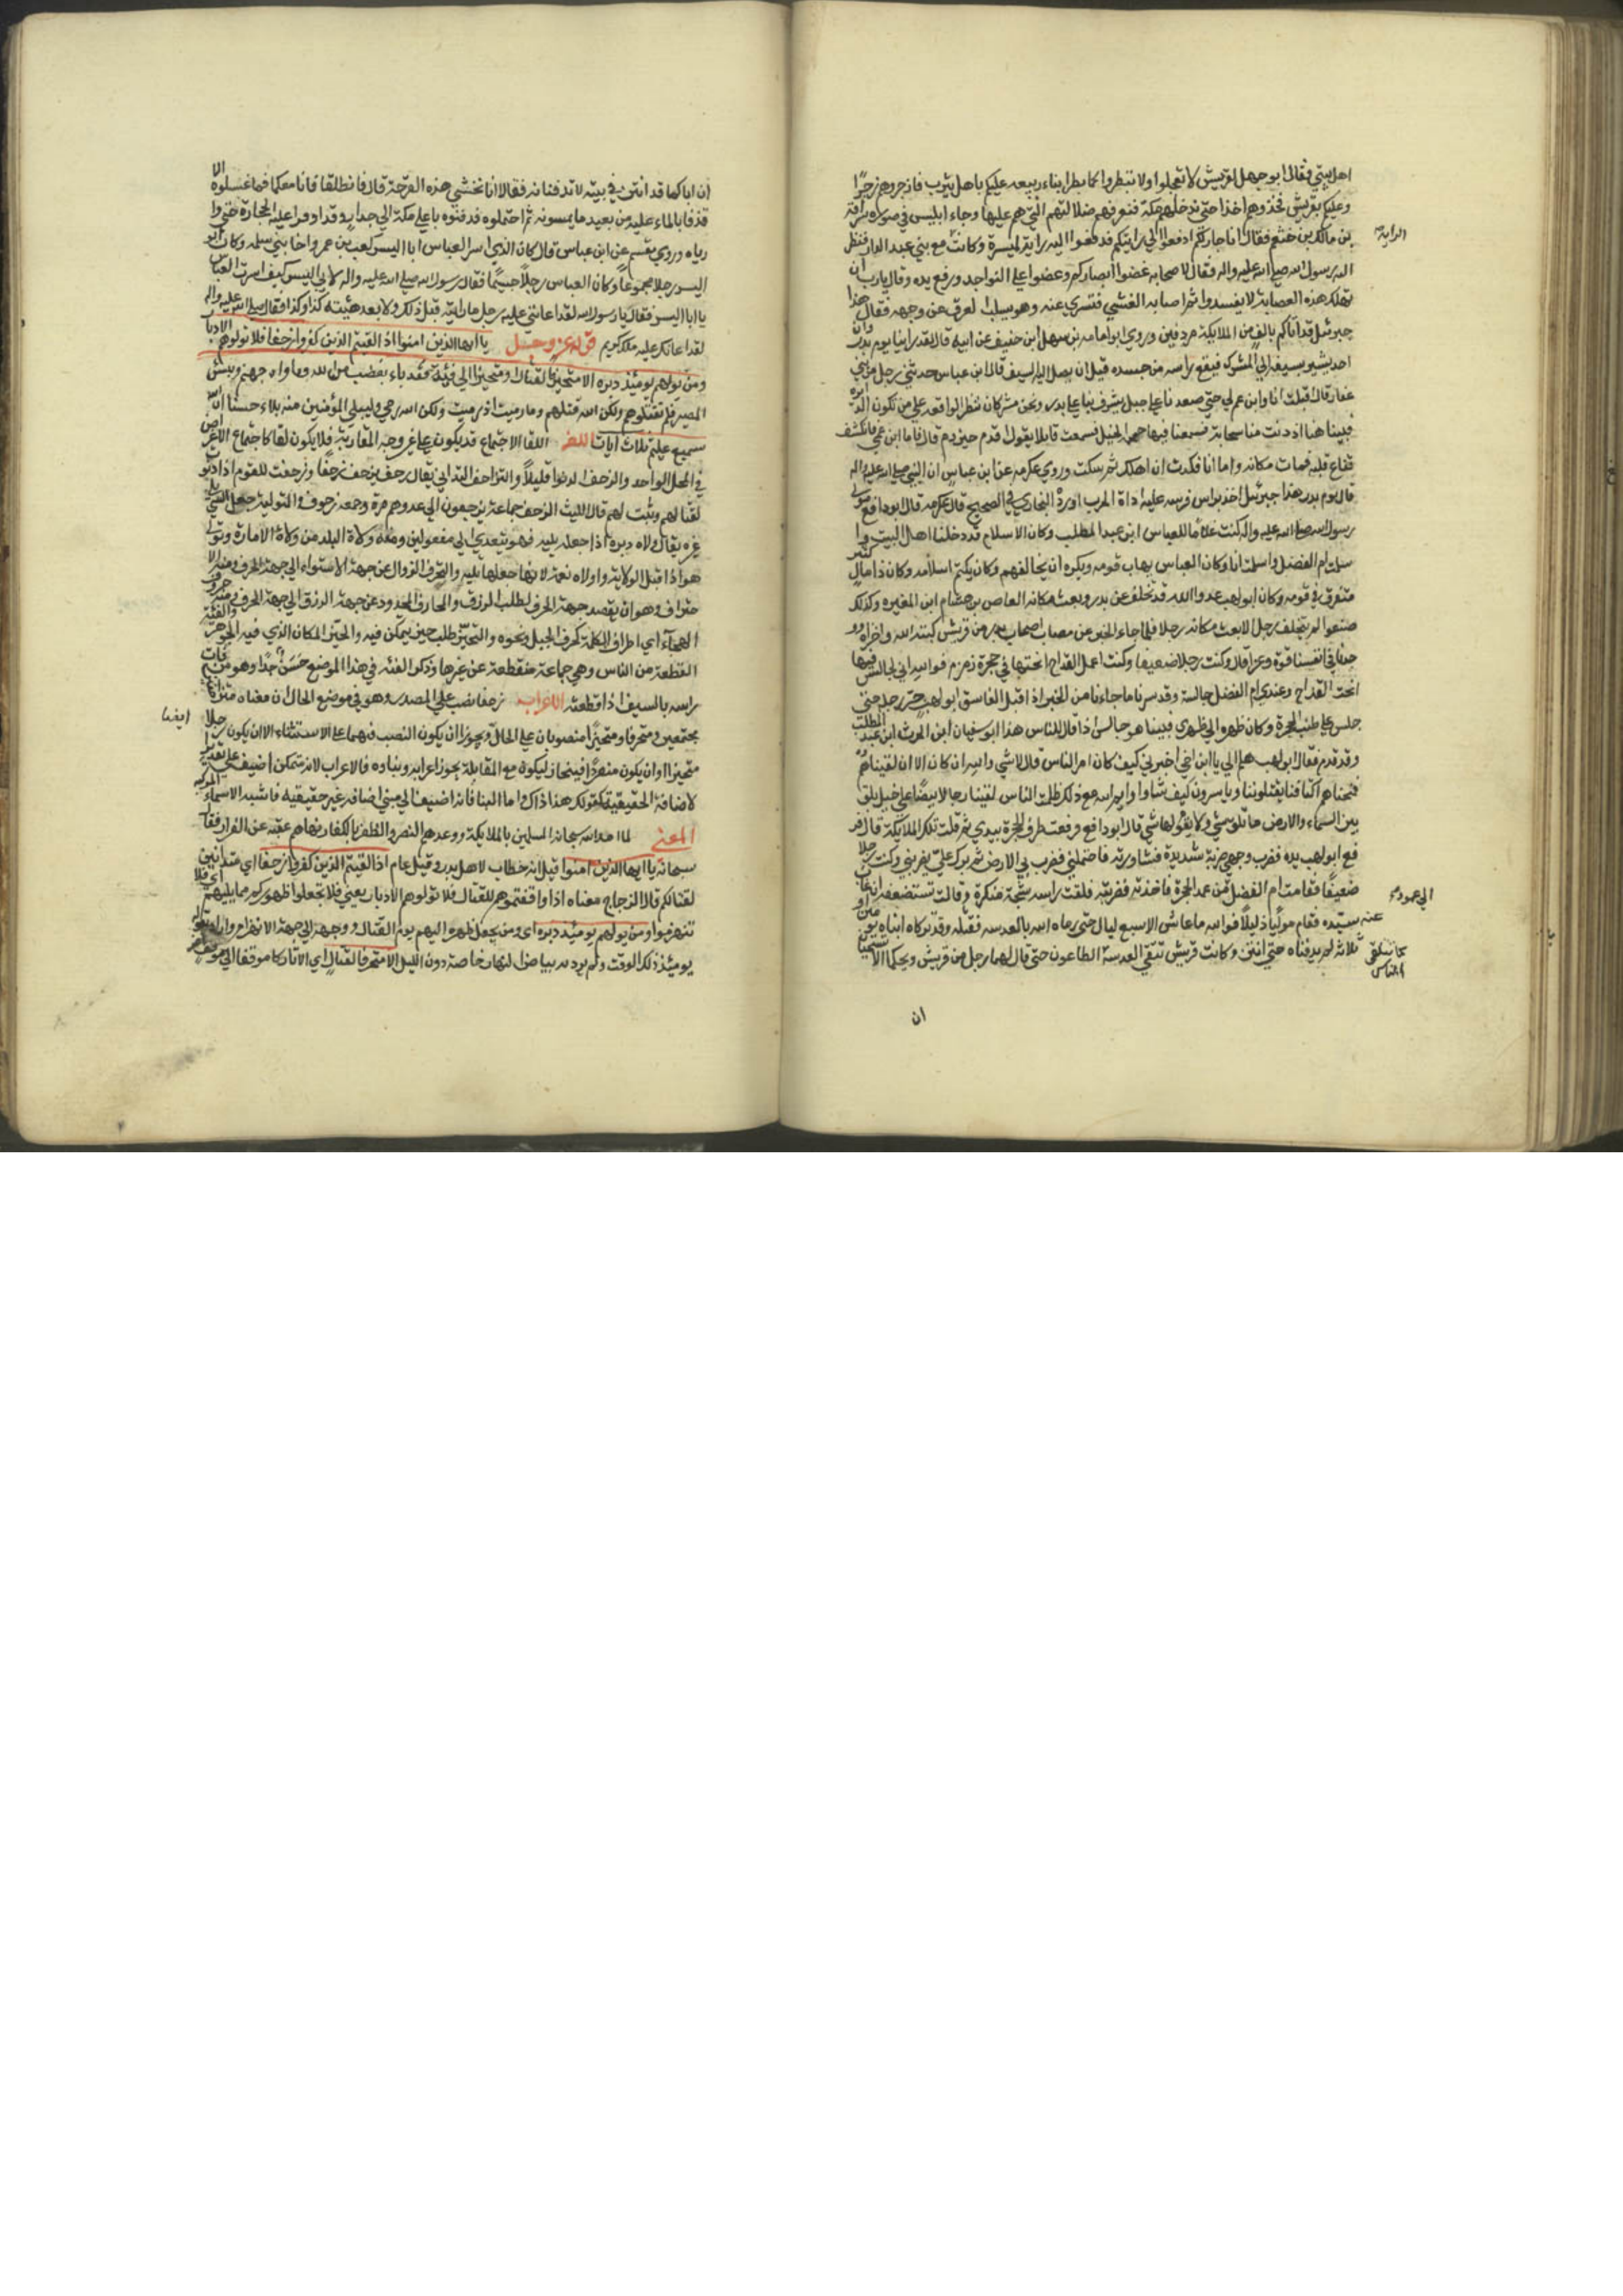 اهل بيتي فقال ابو جهل لقريش لا تعجلوا ولا تبطروا كما بطر ابناء ربيعه عليكم باهل يثرب فاجزروهم جزرا
وعليكم بقريش فخذوهم اخذا حتى ندخلهم مكة فنعرفهم ضلالتهم التي هم عليها وجاء ابليس في صورة سراقة
بن مالك بن جشعم فقال انا جار لكم ادفعوا الي رايتكم فدفعوا اليه راية الميسرة وكانت مع بني عبد الدار فنظر
الرايه
اليه رسول الله صلى الله عليه واله فقال لاصحابه غضوا ابصاركم وعضوا على النواجد ورفع يده وقال يارب ان
تهلك هذه العصابة لا تعبد ثم اصابه الغشي فسري عنه وهو يسلت العرق عن وجهه فقال هذا
جبرئيل قد اتاكم بالف من الملايكة مردفين وروي ابو امامه بن سهل ابن حنيف عن ابيه قال لقد راينا يوم بدر وان
احدنا يشير بسيفه الي المشرك فيقع راسه من جسده قبل ان يصل اليه السيف قال ابن عباس حدثني رجل من بني
غفار قال اقبلت انا وابن عم لي حتى صعدنا على جبل يشرف بنا على بدر ونحن مشركان ننتظر الواقعه على من تكون الدبرة
فبينا هنا اذ دنت منا سحابة فسمعنا فيها حمحمة الخيل فسمعت قايلا يقول اقدم حيزوم قال فاما ابن عمي فانكشف
قناع قلبه فمات مكانه واما انا فكدت ان اهلك ثم سكت وروي عكرمه عن ابن عباس ان النبي صلى الله عليه واله
قال يوم بدر هذا جبرئيل اخذ براس فرسه عليه اداة الحرب اورده البخاري في الصحيح قال عكرمه قال ابو رافع مولي
رسول الله صلى الله عليه واله كنت غلاما للعباس ابن عبد المطلب وكان الاسلام قد دخلنا اهل البيت و
اسلمت ام الفضل واسلمت انا وكان العباس يهاب قومه ويكره ان يخالفهم وكان يكتم اسلامه وكان ذا مال كثير
متفرق في قومه وكان ابو لهب عدو الله قد تخلف عن بدر وبعث مكانه العاص بن هشام ابن المغيره وكذلك
صنعوا لم يتخلف رجل الا بعث مكانه رجلا فلما جاء الخبر عن مصاب اصحاب بدر من قريش كبته الله واخزاه وو
جدنا في انفسنا قوة وعزا قال وكنت رجلا ضعيفا وكنت اعمل القداح انحتها في حجرة زمزم فوالله اني لجالس فيها
انحت القداح وعندي ام الفضل جالسة وقد سرنا ما جاءنا من الخبر اذ اقبل الفاسق ابو لهب يجر رجليه حتى
جلس على طنب الحجرة وكان ظهره الي ظهري فبينا هو جالس اذ قال الناس هذا ابو سفيان ابن الحرث ابن عبد المطلب
وقد قدم فقال ابو لهب هلم الي يا ابن اخي اخبرني كيف كان امر الناس قال لا شي والله ان كان الا ان لقيناهم
فمنحناهم اكتافنا يقتلوننا وياسرون كيف شاوا وايم الله مع ذلك ما لمت الناس لقينا رجالا بيضا على خيل بلق
بين السماء والارض ما تليق شي ولا يقوم لها شي قال ابو رافع فرفعت طرف الحجرة بيدي ثم قلت تلك الملايكة قال فر
فع ابو لهب يده فضرب وجهي ضربة شديدة فثاورته فاحتملني فضرب بي الارض ثم برك علي يضربني وكنت رجلا
ضعيفا فقامت ام الفضل من عمد الحجرة فاخذته فضربته فلقت راسه شجة منكرة وقالت تستضعفه ان غاب
الي عمود
عنه سيده فقام موليا ذليلا فوالله ما عاش الا سبع ليال حتى رماه الله بالعدسه فقتله ولقد تركاه ابناه يومين او
ثلاثه لم يدفناه حتى انتن وكانت قريش تتقي العدسة الطاعون حتى قال لهما رجل من قريش ويحكما الا تستحيان
كما يتقي الناس
ان
ان اباكما قد انتن في بيته لا تدفنانه فقالا انا نخشي هذه القرحة قال فانطلقا فانا معكما فما غسلوه الا
قذفا بالماء عليه من بعيد ما يمسونه ثم احتملوه فدفنوه باعلى مكة الي جدار وقذفوا عليه الحجارة حتى وا
رياه وروي مقسم عن ابن عباس قال كان الذي اسر العباس ابا اليسر كعب بن عمرو اخا بني سلمه وكان ابو
اليسر رجلا مجموعا وكان العباس رجلا جسيما فقال رسول الله صلى الله عليه واله لابي اليسر كيف اسرت العباس
يا ابا اليسر فقال يا رسول الله لقد اعانني عليه رجل ما رايته قبل ذلك ولا بعد هيئته كذا وكذا فقال صلى الله عليه واله
لقد اعانك عليه ملك كريم قوله عز وجل يا ايها الذين امنوا اذا لقيتم الذين كفروا زحفا فلا تولوهم الادبار
ومن يولهم يومئذ دبره الا متحرفا لقتال او متحيزا الي فئة فقد باء بغضب من الله وماواه جهنم وبئس
المصير فلم تقتلوهم ولكن الله قتلهم وما رميت اذ رميت ولكن الله رمي وليبلي المؤمنين منه بلاء حسنا ان الله
سميع عليم ثلاث ايات اللغه اللقا الاجتماع قد يكون على غير وجه المقاربة فلا يكون لقا كاجتماع الاعراض
في المحل الواحد والزحف الدنو قليلا والتزاحف التداني يقال زحف يزحف زحفا وزحفت للقوم اذا ثبت
لقتالهم وثبت لهم قال الليث الزحف جماعة يزحفون الي عدوهم مرة وجمعه زحوف والتولية جعل الشي يلي
غيره يقال ولاه دبره اذا جعله يليه فهو يتعدي الي مفعولين ومنه ولاة البلد من ولاة الامارة وتولي
هو اذا قبل الولاية واولاه نعمة لانها جعلها تليه والتحرف الزوال عن جهة الاستواء الي جهة الحرف ومنه الا
حتراف وهو ان يقصد جهة الحرف لطلب الرزق والمحارف المحدود عن جهة الرزق الي جهة الحرف ومنه حروف
الهجاء اي اطراف الكلمة كحرف الجبل ونحوه والتحيز طلب حيز يتمكن فيه والحيز المكان الذي فيه الجوهر والفئة
القطعة من الناس وهي جماعة منقطعة عن غيرها وذكر الفئه في هذا الموضع حسن جدا وهو من فات
راسه بالسيف اذا قطعته الاعراب زحفا نصب على المصدر وهو في موضع الحال ان معناه متزاحفين
مجتمعين ومتحرفا ومتحيزا منصوبان على الحال ويجوز ان يكون النصب فيهما على الاستثناء الا ان يكون رجلا
ايضا
متحيزا او ان يكون منفردا فينحاز ليكون مع المقاتلة
المعني لما امد الله سبحانه المسلمين بالملايكة ووعدهم النصر والظفر بالكفار نهاهم عقبه عن الفرار فقال
سبحانه يا ايها الذين امنوا قيل انه خطاب لاهل بدر وقيل عام اذا لقيتم الذين كفروا زحفا اي متدانين
لقتالكم قال الزجاج معناه اذا واقفتموهم للقتال فلا تولوهم الادبار يعني فلا تجعلوا ظهوركم مما يليهم اي فلا
تنهزموا ومن يولهم يومئذ دبره اي ومن يجعل ظهره اليهم يوم القتال ووجهه الي جهة الانهزام واراد بقوله
يومئذ ذلك الوقت ولم يرد به بياض النهار خاصة دون الليل الا متحرفا لقتال اي الا تاركا موقفا الي موقف